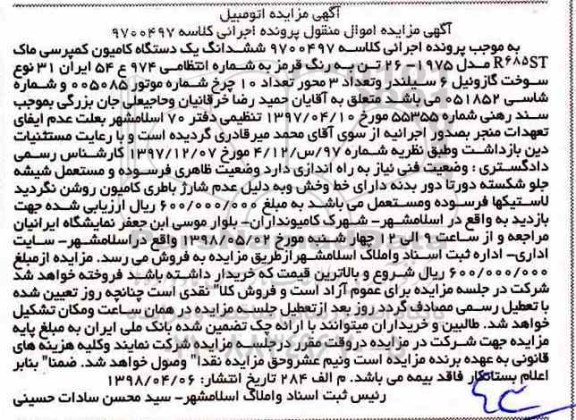 آگهی مزایده اتومبیل
آگهی مزایده اموال منقول پرونده اجرائی کلاسه ۹۷۰۰۴۹۷
به موجب پرونده اجرائی کلاسه ۹۷۰۰۴۹۷ ششدانگ یک دستگاه کامیون کمپرسی ماک
R۶۸۵ST مدل ۱۹۷۵- ۲۶ تن به رنگ قرمز به شماره انتظامی ۹۷۴ ع ۵۴ ایران ۳۱ نوع
سوخت گازوئیل ۶ سیلندر وتعداد ۳ محور تعداد ۱۰ چرخ شماره موتور ۰۰۵۰۸۵ و شماره
شاسی ۰۵۱۸۵۲ می باشد متعلق به آقایان حمید رضا خرقانیان وحاجیعلی جان بزرگی بموجب
سند رهنی شماره ۵۵۳۵۵ مورخ ۱۳۹۷/۰۴/۱۰ تنظیمی دفتر ۷۰ اسلامشهر بعلت عدم ایفای
تعهدات منجر بصدور اجرائیه از سوی آقای محمد میرقادری گردیده است و با رعایت مستثنیات
دین بازداشت وطبق نظریه شماره ۹۷/س/۴/۱۲ مورخ ۱۳۹۷/۱۲/۰۷ کارشناس رسمی
دادگستری : وضعیت فنی نیاز به راه اندازی دارد وضعیت ظاهری فرسوده و مستعمل شیشه
جلو شکسته دورتا دور بدنه دارای خط وخش وبه دلیل عدم شارژ باطری کامیون روشن نگردید
لاستیکها فرسوده ومستعمل می باشد به مبلغ ۶۰۰/۰۰۰/۰۰۰ ریال ارزیابی شده جهت
بازدید به واقع در اسلامشهر- شهرک کامیونداران- بلوار موسی ابن جعفر نمایشگاه ایرانیان
مراجعه و از ساعت ۹ الی ۱۲ چهار شنبه مورخ ۱۳۹۸/۰۵/۰۲ واقع در اسلامشهر- سایت
اداری- اداره ثبت اسناد واملاک اسلامشهر ازطریق مزایده به فروش می رسد. مزایده ازمبلغ
۶۰۰/۰۰۰/۰۰۰ ریال شروع و بالاترین قیمت که خریدار داشته باشد فروخته خواهد شد
شرکت در جلسه مزایده برای عموم آزاد است و فروش کلا" نقدی است چنانچه روز تعیین شده
با تعطیل رسمی مصادف گردد روز بعد ازتعطیل جلسه مزایده در همان ساعت ومکان تشکیل
خواهد شد. طالبین و خریداران میتوانند با ارائه چک تضمین شده بانک ملی ایران به مبلغ پایه
مزایده جهت شرکت در مزایده دروقت مقرر درجلسه مزایده شرکت نمایند وکلیه هزینه های
قانونی به عهده برنده مزایده است ونیم عشروحق مزایده نقدا" وصول خواهد شد. ضمنا" بنابر
اعلام بستانکار فاقد بیمه می باشد. م الف ۲۸۴ تاریخ انتشار: ۱۳۹۸/۰۴/۰۶
رئیس ثبت اسناد واملاک اسلامشهر- سید محسن سادات حسینی